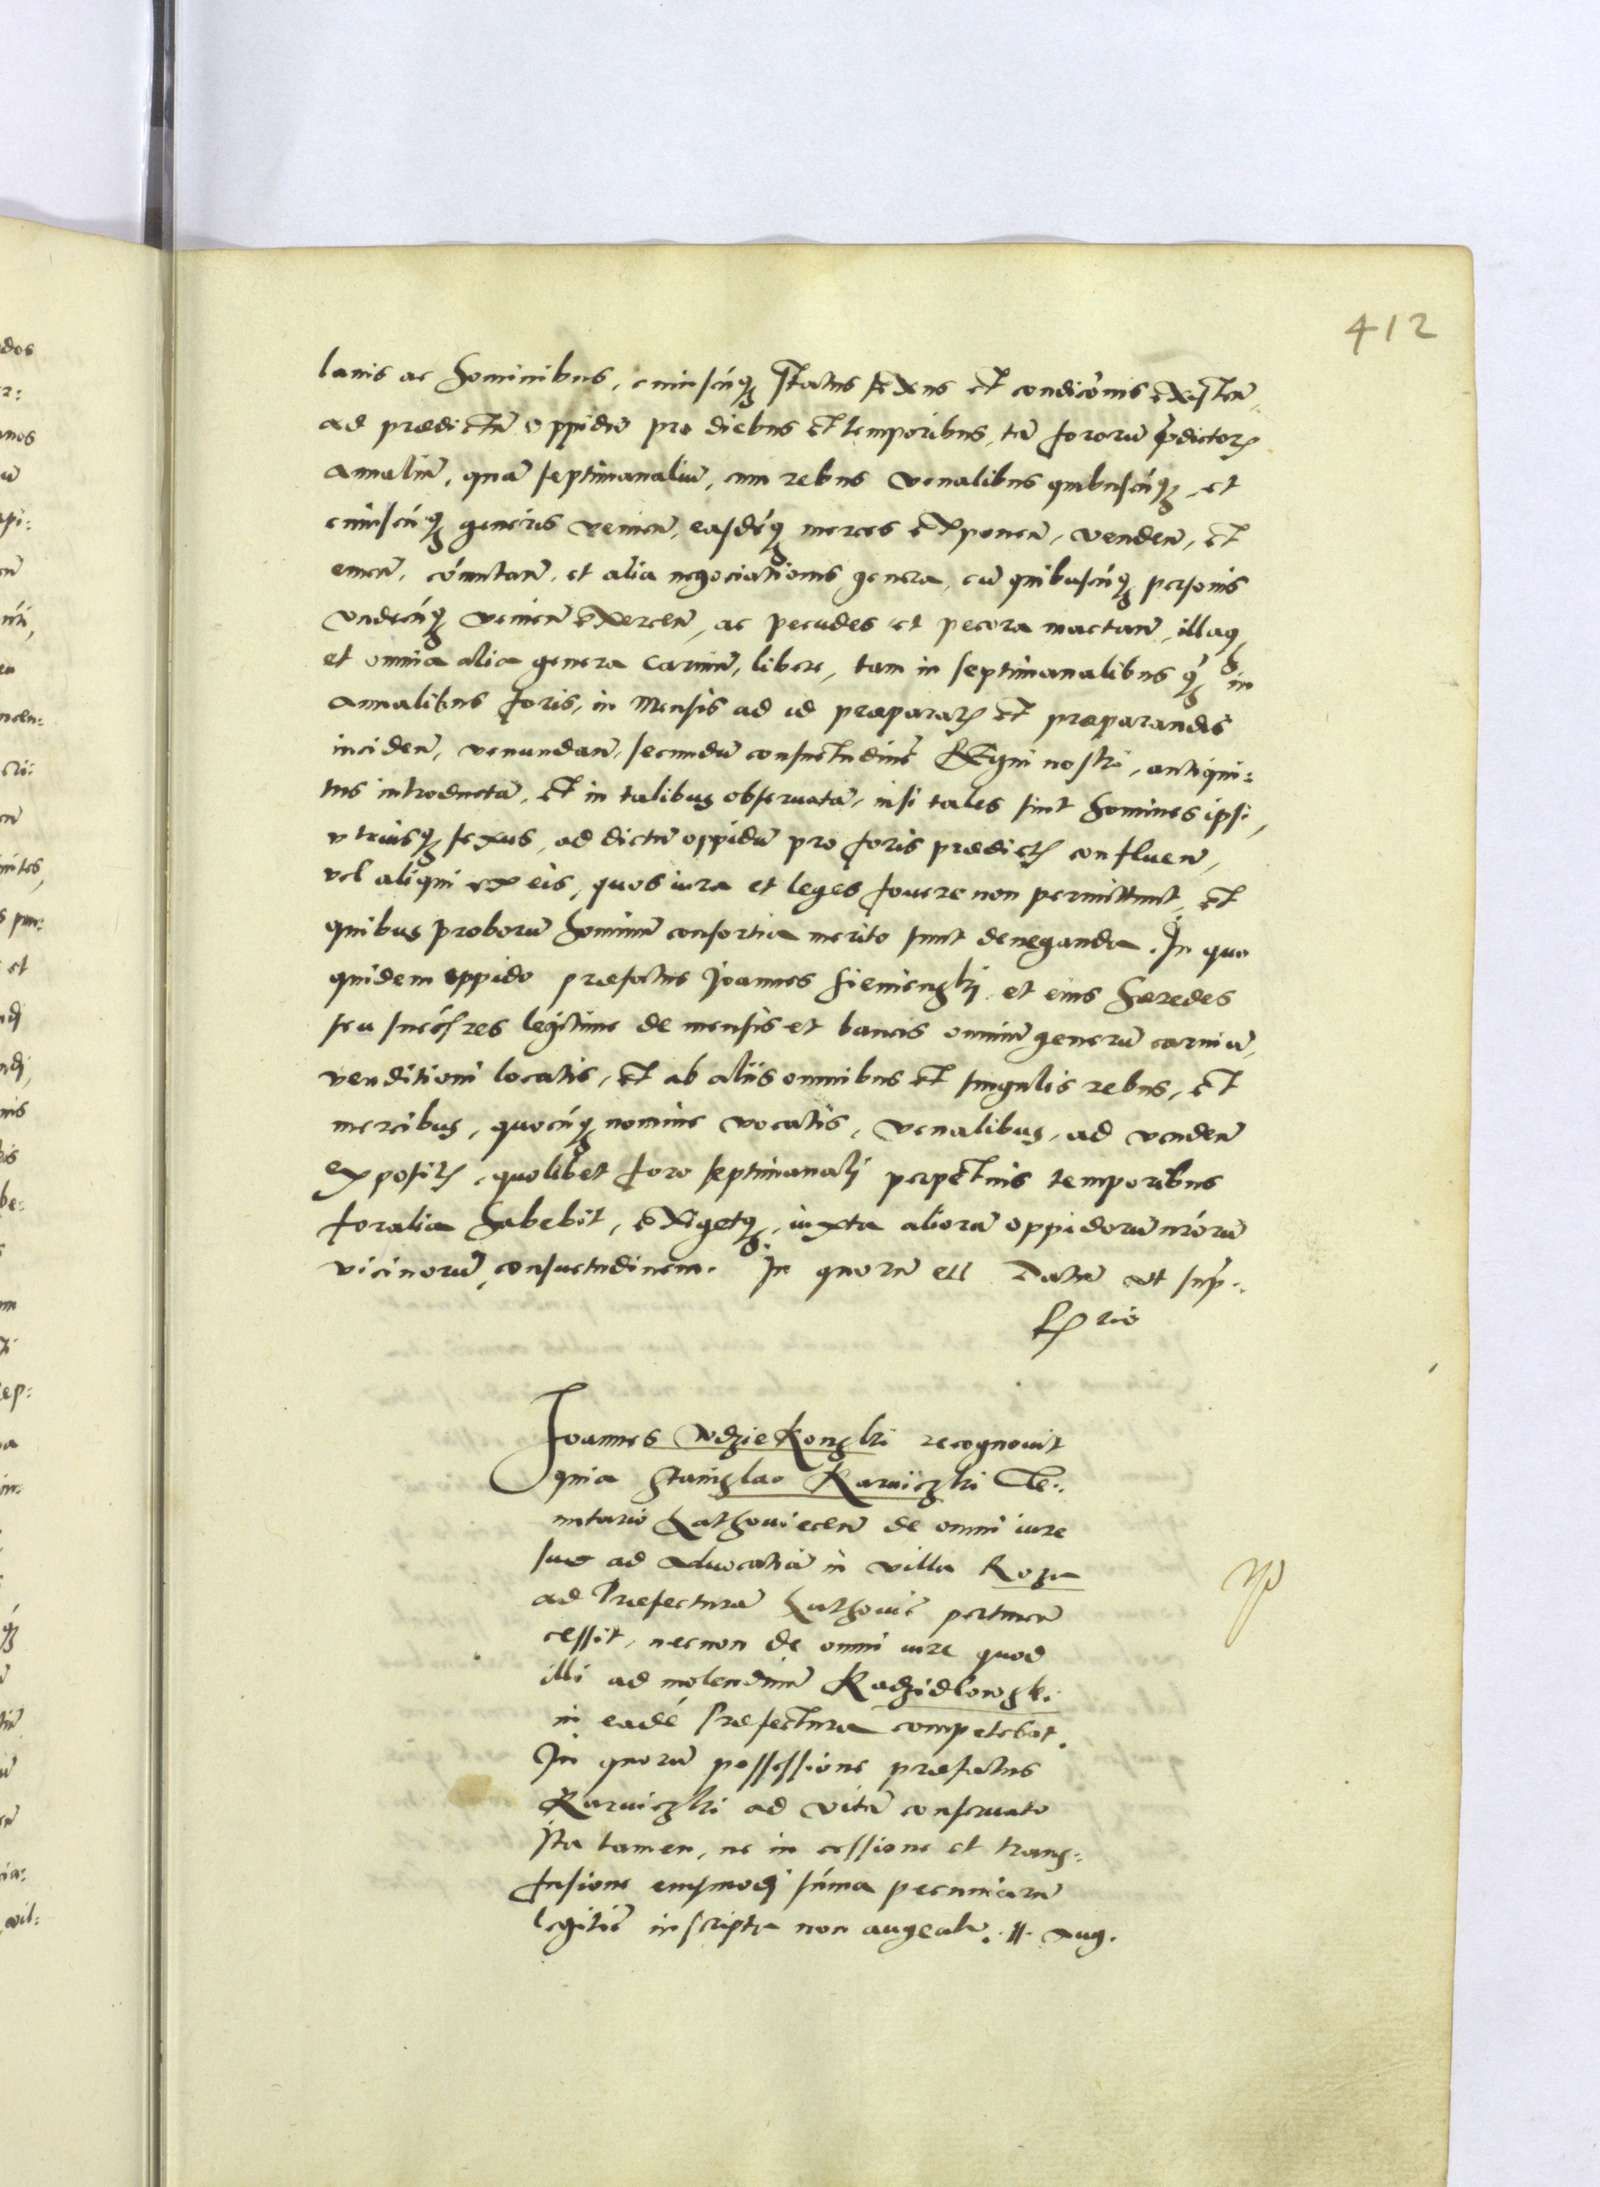 412
lanis ac hominibus, cuiuscūq3 status sexus et condicōnis existeñ,
ad prædictū oppidū pro diebus et temporibus, tā fororū p̄dictor3
annaliū, quā septimanaliū, cum rebus venalibus quibuscūq3, et
cuiuscūq3 generis venieñ, easdēq3 merces exponeñ, vendeñ, et
emeñ, cōmutañ, et alia negociationis genera, cū quibuscūq3 personis
vndecūq3 venieñ exerceñ, ac pecudes et pecora mactañ, illaq3
et omnia alia genera carniū, libere, tam in septimanalibus q̄3 in
annalibus foris, in mensis ad id præparat3 et præparandis
incideñ, venundañ, secundū consuetudinē Regni nostri, antiqui:
tus introductā, et in talibus obseruatā, nisi tales sint homines ipsi,
vtriusq3 sexus, ad dictū oppidū pro foris prædict3 conflueñ,
vel aliqui ex eis, quos iura et leges fouere non permittunt, et
quibus proborū hominū consortia merito sunt deneganda. In quo
quidem oppido præfatus Joannes Sieniensky et eius hæredes
seu succēs res legitime de mensis et bancis omniū generū carniū,
venditioni locatis, et ab aliis omnibus et singulis rebus, et
mercibus, quocūq3 nomine vocatis, venalibus, ad vendeñ
exposit3, quolibet foro septimanali perpetuis temporibus
foralia habebit, exigetq3, iuxta aliorū oppidorū nr̄orū
vicinorū, consuetudinem. In quorū etc Datū vt sup̄.
R rio
Joannes Wdziekonski recognouit
quia Stanislao Karniczki Te:
nutario Lathouieceñ de omni iure
suo ad aduocatiā in villa Roza
ad Præfecturā Lathouic̄ pertineñ
cessit, necnon de omni iure quod
illi ad molendinū Radzidlowsk.
in eadē Præfectura competebat.
In quorū possessione præfatus
Karniczki ad vitā conseruato
Ita tamen, ne in cessione et trans:
fusione eiusmodi sūma pecuniarū
legitīe inscripta non augeat̄. 11. Aug.